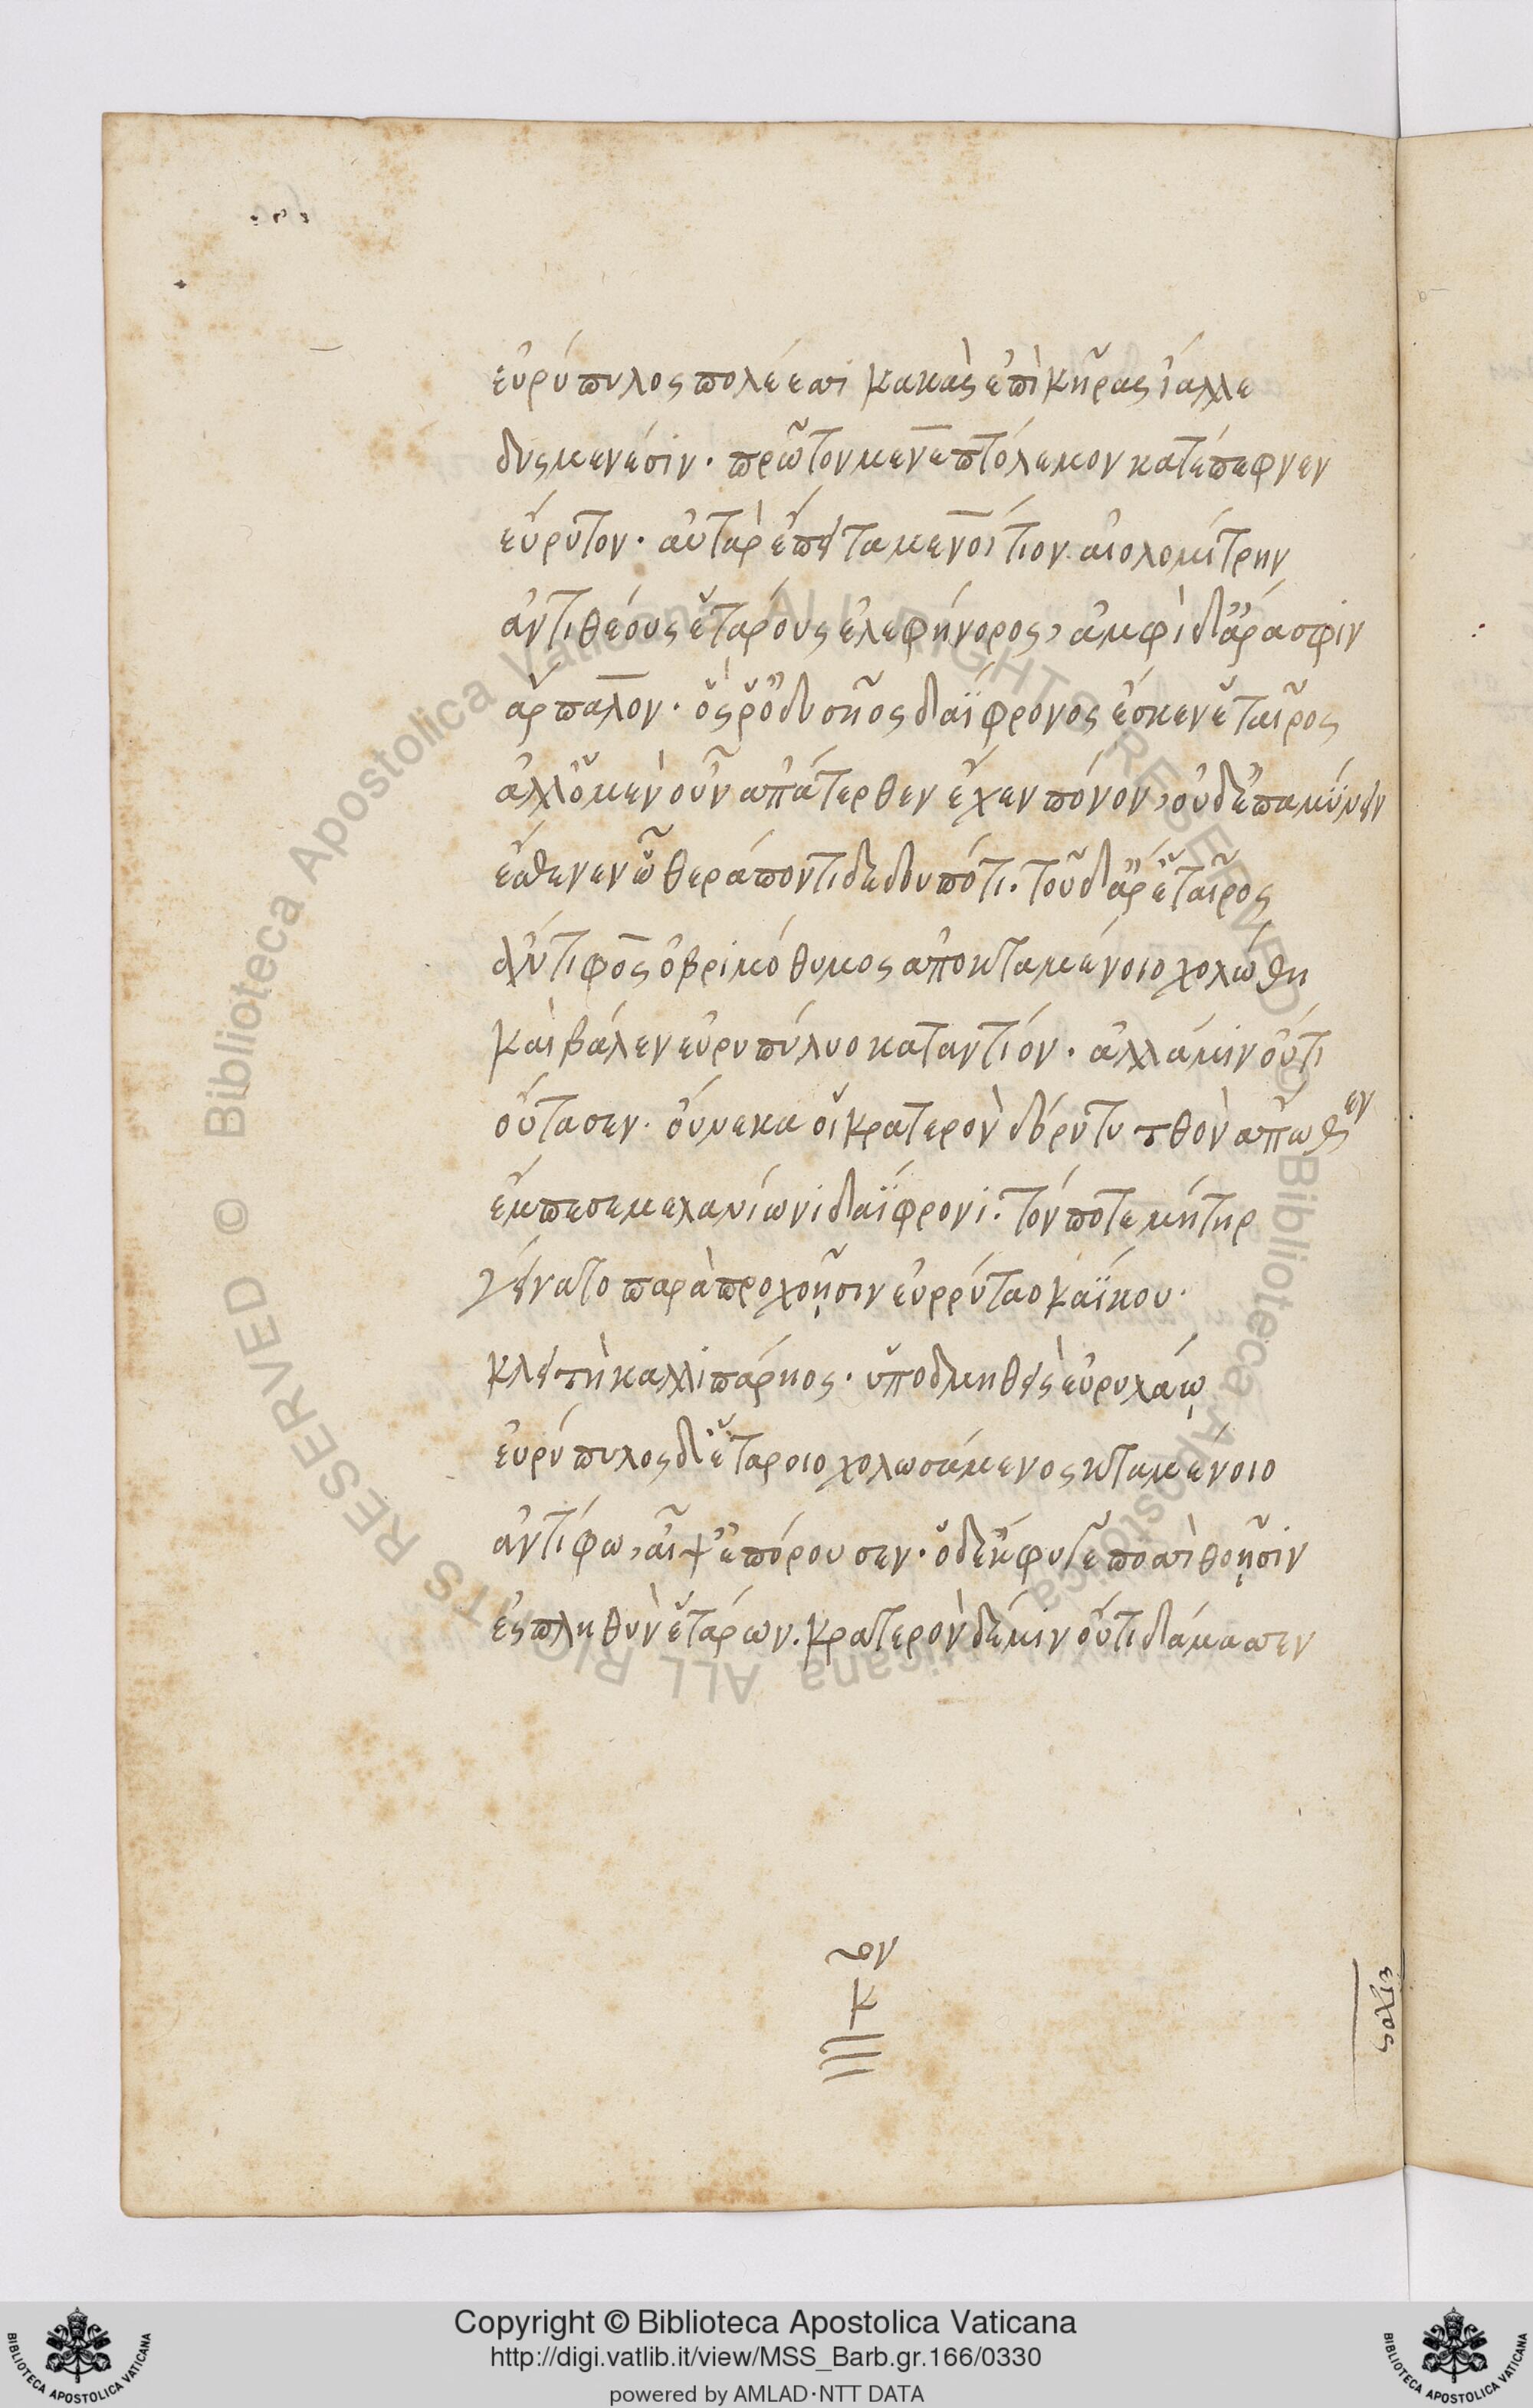 εὐρύπυλος πολέεσσι κακὰς ἐπὶ κῆρας ἴαλλε
δυσμενέσιν. πρῶτον μενεπτόλεμον κατέπεφνεν
εὔρυτον. αὐτὰρ ἔπειτα μενοίτιον αἰολομίτρην
ἀντιθέους ἑτάρους ἐλεφήνορος, ἀμφὶ δ' ἄρά σφιν
ἅρπαλον. ὅς ῥ' ὀδυσῆος δαΐφρονος ἔσκεν ἑταῖρος
ἀλλ' ὁ μὲν οὖν ἀπάτερθεν ἔχεν πόνον, οὐδ' ἐπαμύνειν
ἔσθενεν ᾧ θεράποντι δεδουπότι. τοῦ δ' ἄρ' ἑταῖρος
ἄντιφος ὀβριμόθυμος ἀποκταμένοιο χολώθη
καὶ βάλεν εὐρυπύλοιο καταντίον. ἀλλά μιν οὔτι
οὔτασεν. οὕνεκά οἱ κρατερὸν δόρυ τυτθὸν ἄπωθεν
ἔμπεσε μελανίωνι δαΐφρονι. τόν ποτε μήτηρ
γείνατο παρὰ προχοῇσιν ἐυρρύταο καΐκου.
κλειτὴ καλλιπάρηος. ὑποδμηθεῖς' εὐρυλάῳ
εὐρύπυλος δ' ἑτάροιο χολωσάμενος κταμένοιο
ἀντίφω, αἶψ' ἐπόρουσεν. ὁ δ' ἔκφυγε ποσσὶ θοῇσιν
ἐς πληθὺν ἑτάρων. κρατερὸν δέ μιν οὔτι δάμασσεν